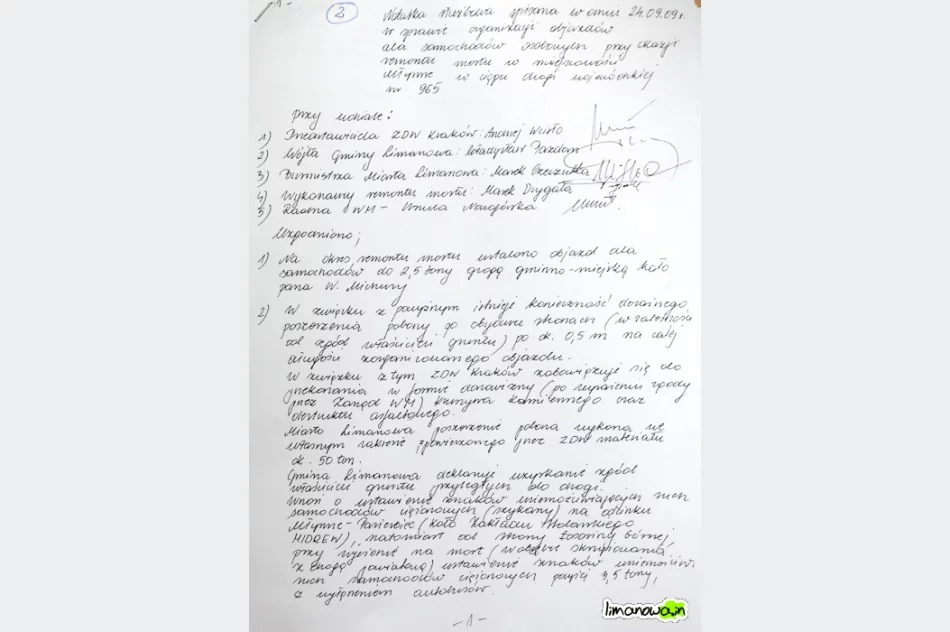 -1-
2
Notatka służbowa spisana w dniu 24.09.09r.
w sprawie organizacji objazdów
dla samochodów osobowych przy okazji
remontu mostu w miejscowości
Młynne w ciągu drogi wojewódzkiej
nr 965
Przy udziale:
1) Przedstawiciela ZDW Kraków: Andrzej
2) Wójta Gminy Limanowa: Władysław Pazdan
3) Burmistrza Miasta Limanowa: Marek Czeczótka
4) Wykonawcy remontu mostu: Marek Drygała
5) Radna WM - Urszula Nowogórska
Uzgodniono;
1) Na okres remontu mostu ustalono objazd dla
samochodów do 2,5 tony drogą gminno-miejską koło
pana W. Michury
2) W związku z powyższym istnieje konieczność doraźnego
poszerzenia pobocny po obydwu stronach (w zależności
od zgód właścicieli gruntu) po ok. 0,5 m na całej
długości zorganizowanego objazdu.
W związku z tym ZDW Kraków zobowiązuje się do
przekazania w formie darowizny (po wyrażeniu zgody
przez Zarząd WM) kruszywa kamiennego oraz
destruktu asfaltowego.
Miasto Limanowa poszerzenie pobocza wykona we
własnym zakresie z powierzonego przez ZDW materiału
ok. 50 ton.
Gmina Limanowa deklaruje uzyskanie zgód
właścicieli gruntu przyległych do drogi.
Wnosi o ustawienie znaków uniemożliwiających ruch
samochodów ciężarowych (szykany) na odcinku
Młynne-Pasierbiec (koło Zakładu Stolarskiego
HIDREW), natomiast od strony Łososiny Górnej
przy wjeździe na most (w obrębie skrzyżowania
z drogą powiatową) ustawienie znaków uniemożliw.
ruch samochodów ciężarowych powyżej 3,5 tony,
z wyłączeniem autobusów.
-1-
limanowa.in